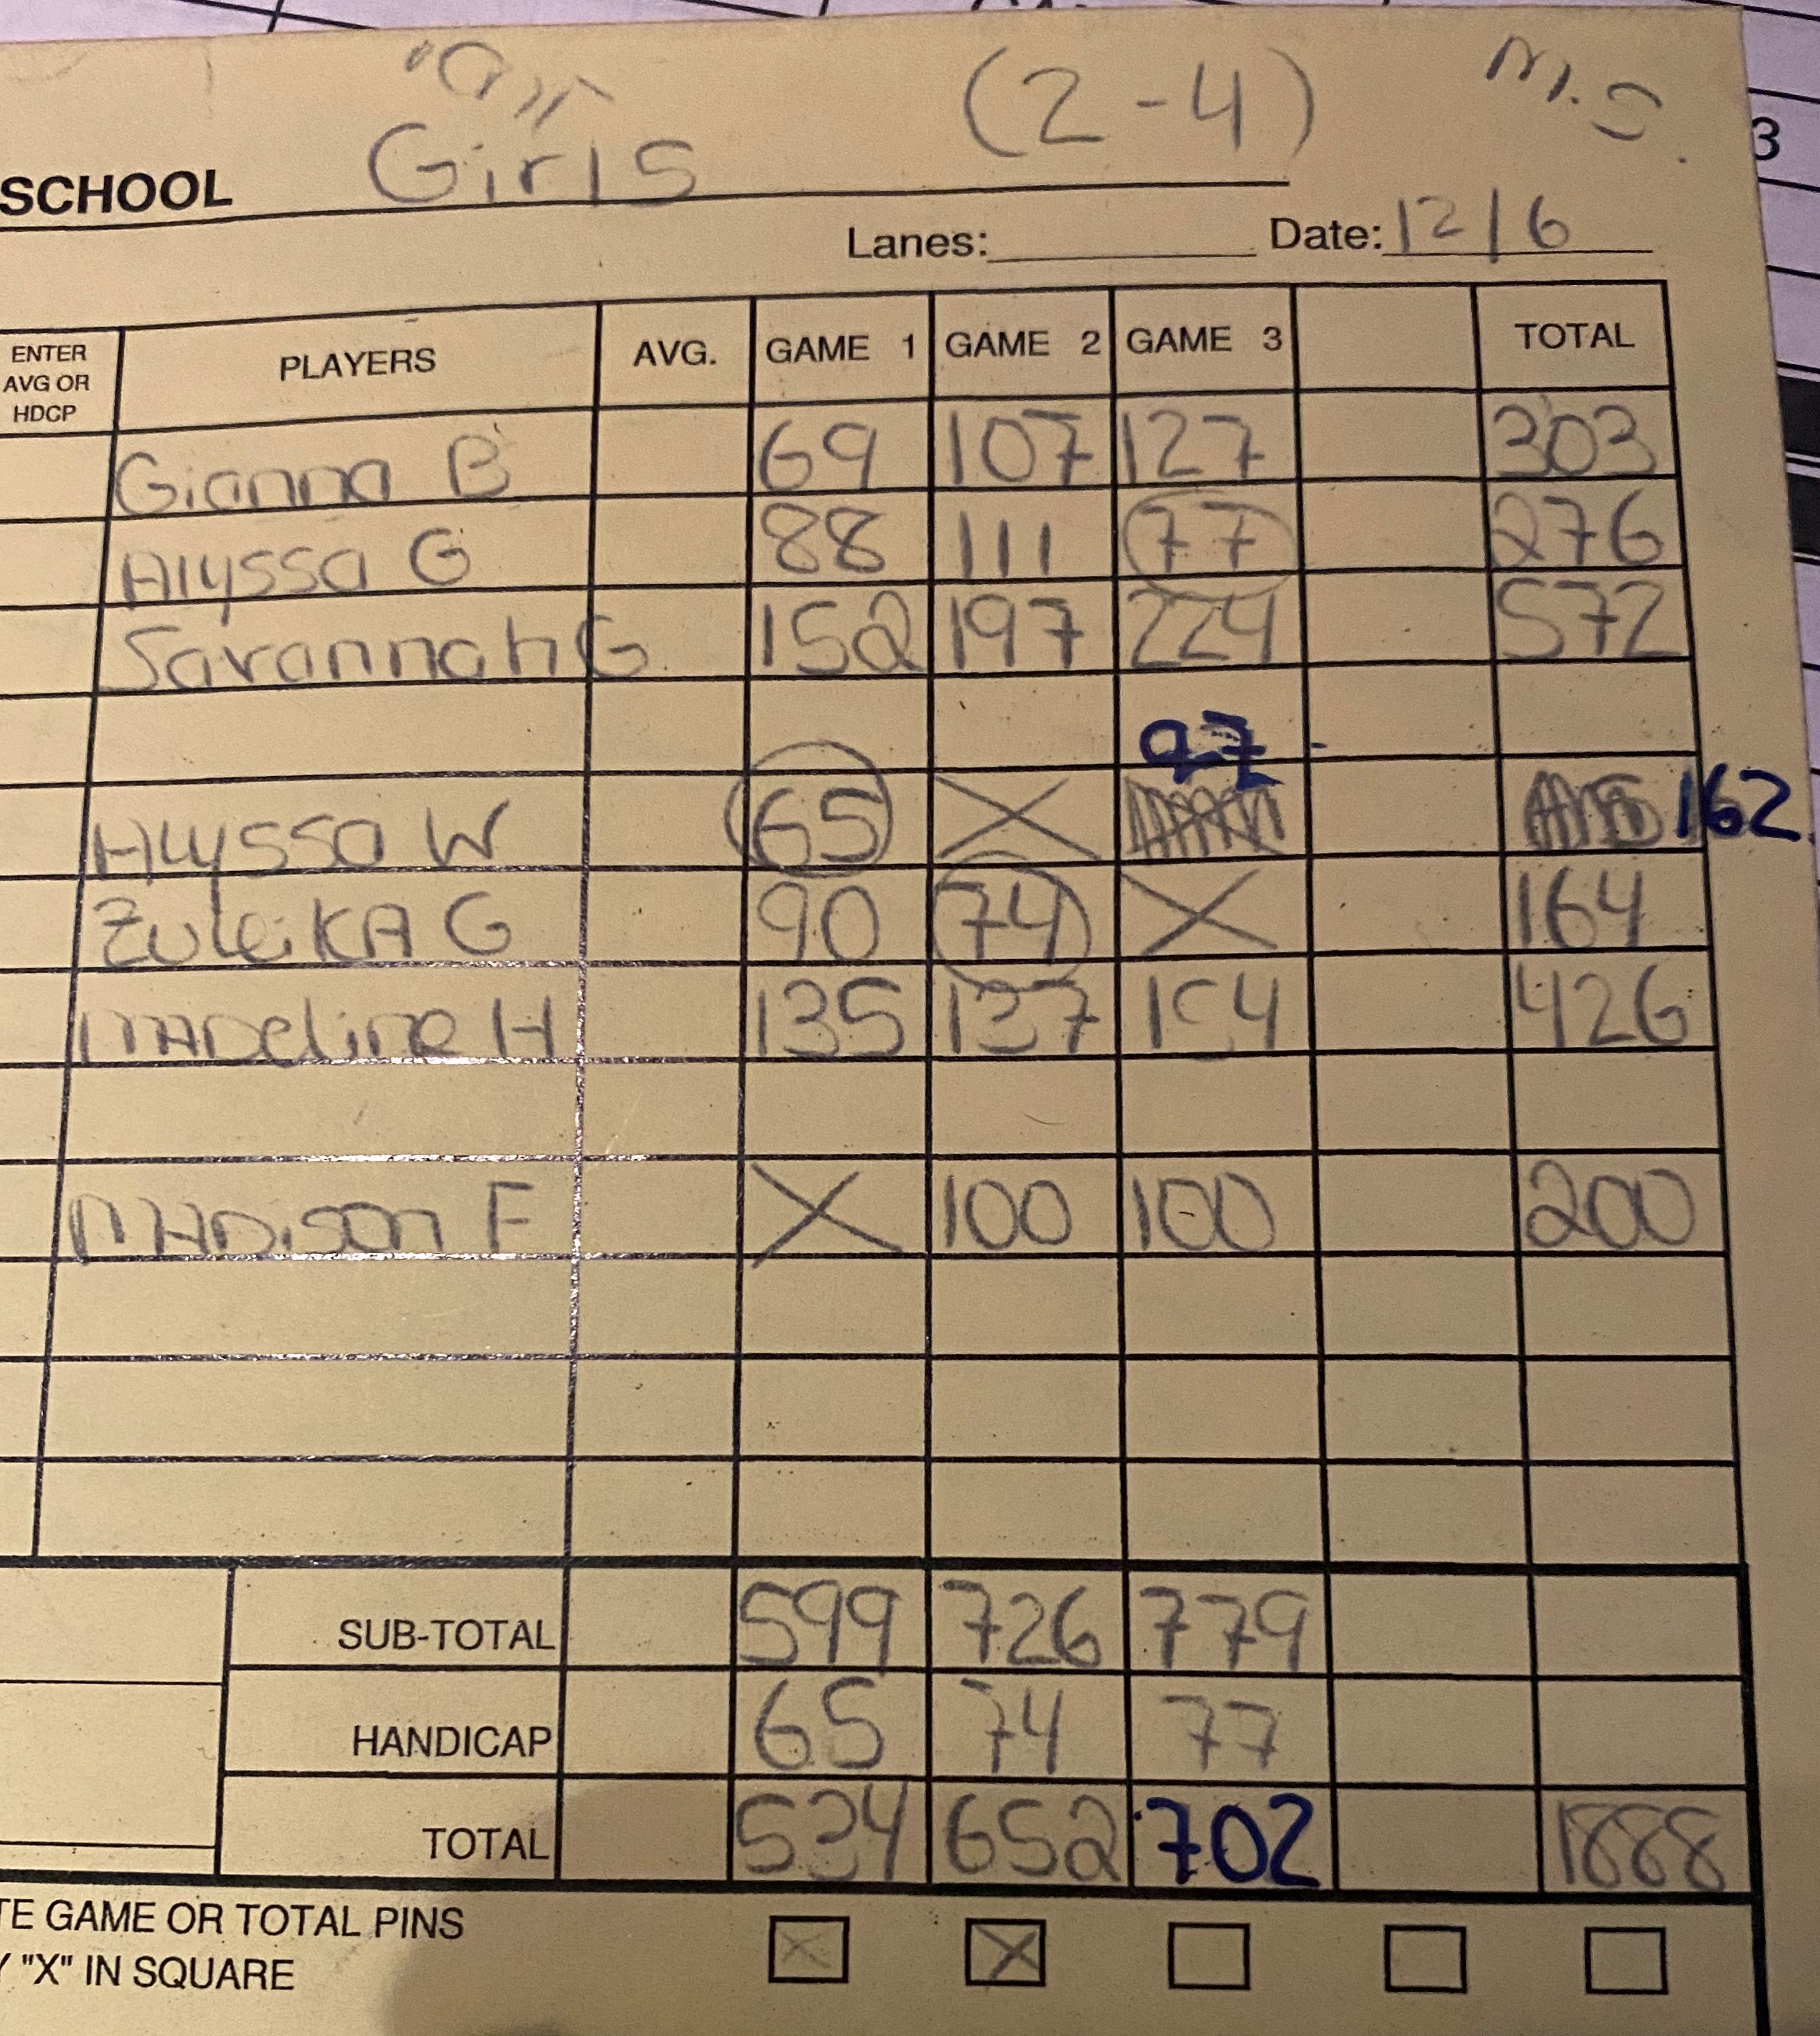 Girls (2-4) M.S.
SCHOOL
Lanes: Date: 12/6
3
ENTER AVG OR HDCP PLAYERS AVG. GAME 1 GAME 2 GAME 3 TOTAL
Gianna B 69 107 127 303
Alyssa G 88 111 77 276
Savannah G. 152 197 224 572
97
Alyssa W 65 X 162
Zuleika G 90 74 X 164
MADeline H 135 137 154 426
MADison F X 100 100 200
SUB-TOTAL 599 726 779
HANDICAP 65 74 77
TOTAL 534 652 702 1888
TE GAME OR TOTAL PINS X X
Y "X" IN SQUARE